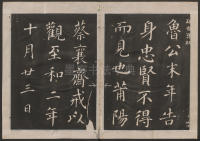 魯公末年告
身忠賢不得
而見也莆陽
蔡襄齋戒以
觀至和二年
十月廿三日